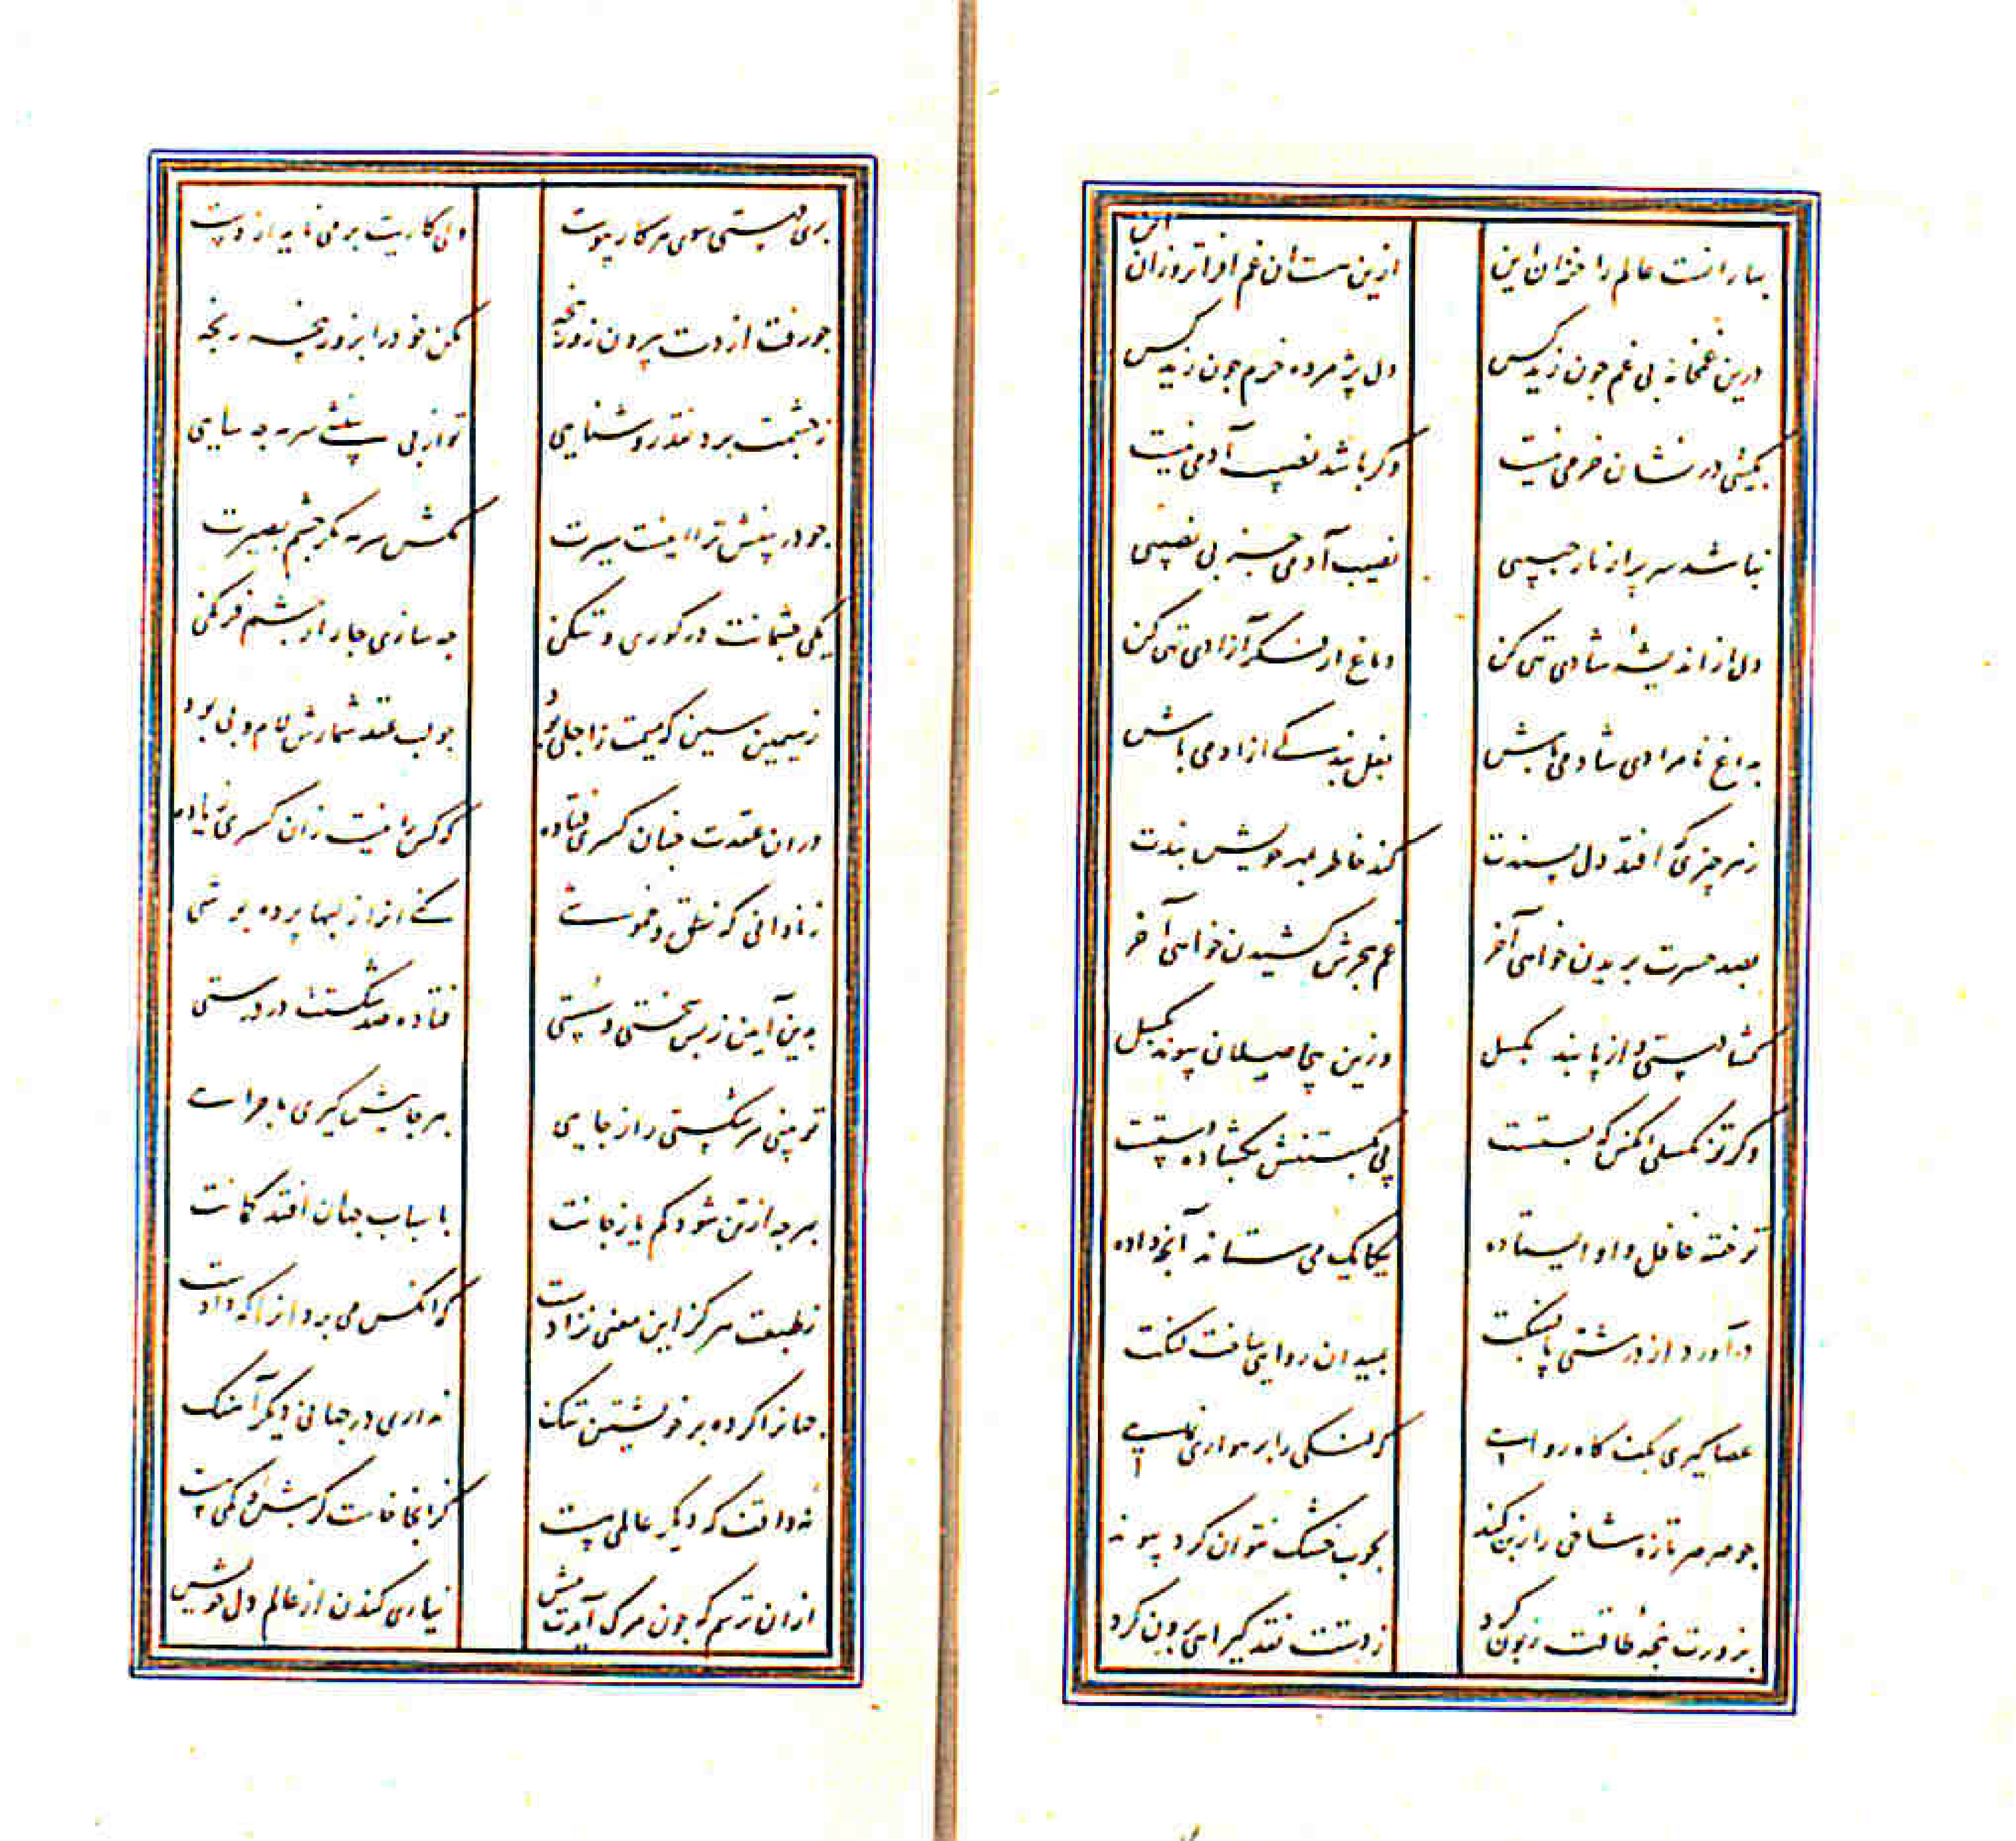 بهارانست عالم را خزان این ازین ستان غم افزاتر وزان این
درین غمخانه بی غم چون زید کس دل پژمرده خرم چون زید کس
بکیتی در نشان خرمی نیست وکر باشد نصیب آدمی نیست
نباشد نصیب آدمی جز بی نصیبی
دل از اندیشه شادی تهی کن دماغ از فکر آزادی تهی کن
بداغ نامرادی شاد می باش بغل بندکی آزاد می باش
ز هر چیزی که افتد دل پسندت کند خاطر بمهر خویش بندت
بصد حسرت بریدن خواهی آخر غم هجرش کشیدن خواهی آخر
کشا دستی و از پا بند بکسل وزین بیحاصلان پیوند بکسل
وکر تو نکسلی آنکس که بستت پی بکسستنش بکشاده دستت
تو خفته غافل و او ایستاده یکایک می ستاند آنچه داده
درآورد از درشتی پا بسنکت بمیدان روایی ساخت لنکت
عصا گیری بکف کاه روایی که لنکی را برهواری
چو صرصر تازه شاخی را ز بن کند بچوب خشک نتوان کرد پیوند
بزورت پنجه طاقت زبون کرد ز دستت نقد گیرایی برون کرد
بری دستی سوی هر کار پیوست ولی کاریت بر می ناید از دست
چو رفت از دست بیرون زور پنجه مکن خود را بزور پنجه رنجه
ز چشمت برد نقد روشنایی تو از بی بینشی سرمه چه سایی
چو در بینش ترا این است سیرت مکش سرمه مکر چشم بصیرت
یکی چشمانت در کوری و تنکی چه سازی چار از چشم فرنکی
ز سیمین سین که سیمت را جلی بود چو لب عقد شمارش لام و بی بود
در ان عقدت چنان کسری فتاده که کس را نیست زان کسری زیاده
ز نادانی که نطق و خموشی کنی از راز لبها پرده پوشی
بدین آیین ز بس سختی و سستی فتاده صد شکستت در درستی
تو بینی هر شکستی را ز جایی بهر جاییش کیری ماجرایی
بهر چه از تن شود کم یا ز جانت باسباب جهان افتد کمانت
ز طبعت هرکز این معنی نزادست که آنکس می برد آنرا که دادست
جهانرا کرده بر خویشتن تنک نداری در جهانی دیکر آهنک
نه دانت که دیکر عالمی هست کز آنجا خاست کر بیش و کمی هست
ازان ترسم که چون مرک آیدت پیش نیاری کندن از عالم دل خویش